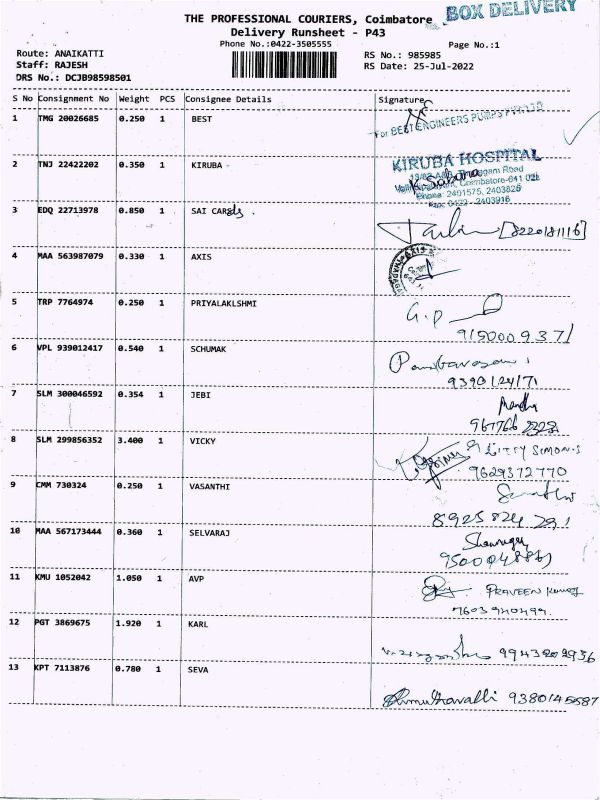 BOX DELIVERY
THE PROFESSIONAL COURIERS, Coimbatore
Delivery Runsheet - P43
Phone No.:0422-3505555
Page No.:1
Route: ANAIKATTI
RS No.: 985985
Staff: RAJESH
RS Date: 25-Jul-2022
DRS No.: DCJB98598501
S No Consignment No Weight PCS Consignee Details Signature
1 TMG 20026685 0.250 1 BEST
For BEST ENGINEERS PUMPS PVT LTD
2 TNJ 22422202 0.350 1 KIRUBA
KIRUBA HOSPITAL
Coimbatore-641 02
Phone: 2401575, 2403826
0422 - 2403916
3 EDQ 22713978 0.850 1 SAI CARS
[8220181116]
4 MAA 563987079 0.330 1 AXIS
5 TRP 7764974 0.250 1 PRIYALAKLSHMI
G.P
915000937/
6 VPL 939012417 0.540 1 SCHUMAK
9390124171
7 SLM 300046592 0.354 1 JEBI
8 SLM 299856352 3.400 1 VICKY
SIMON.S
9629372770
9 CMM 730324 0.250 1 VASANTHI
8925824291
10 MAA 567173444 0.360 1 SELVARAJ
11 KMU 1052042 1.050 1 AVP
PRAVEEN Kumar
7603940499.
12 PGT 3869675 1.920 1 KARL
9943202936
13 KPT 7113876 0.780 1 SEVA
Amuthavalli 9380145587